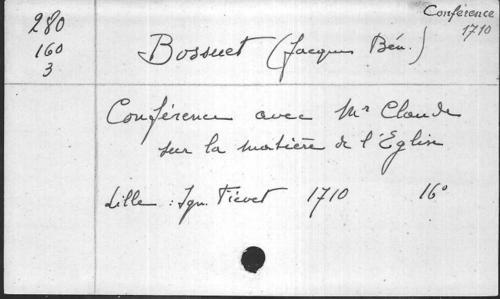 280
160
3
Conférence
1710
Bossuet (Jacques Bén.)
Conférence avec Mr Claude
sur la matière de l'Eglise
Lille : Ign. Fiévet 1710 16°